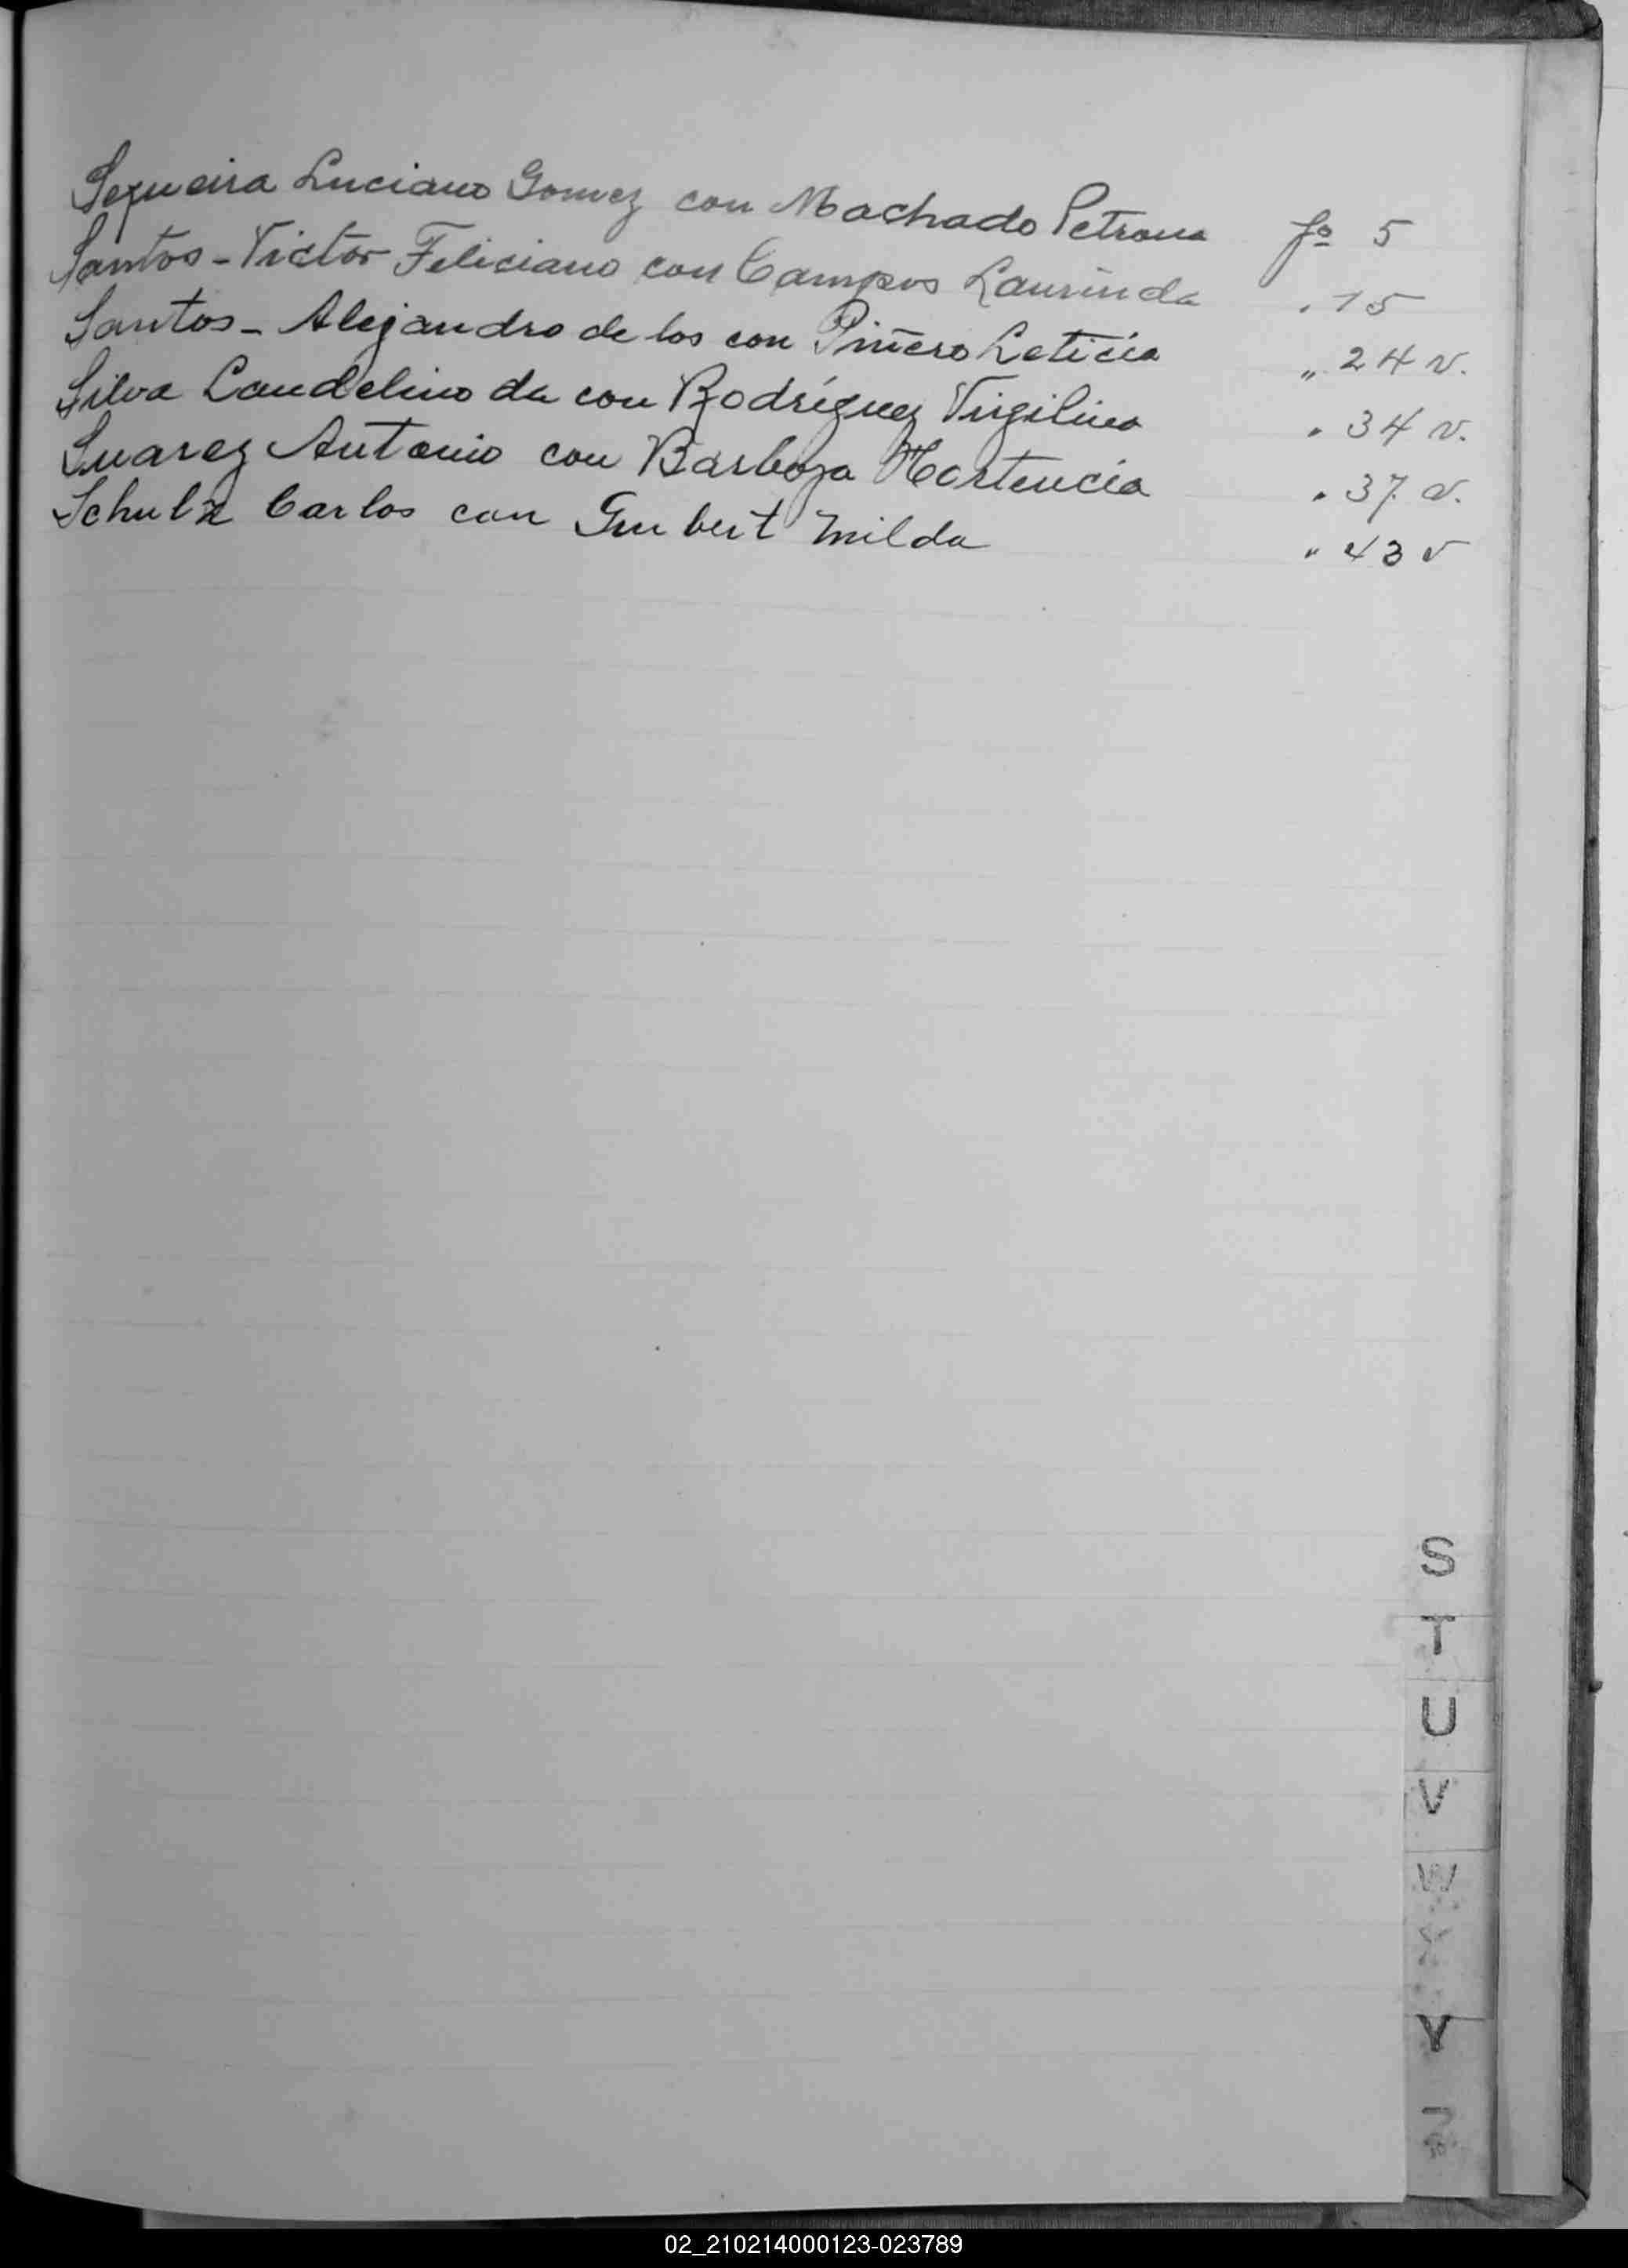 Sequeira Luciano Gomez con Machado Petrona fº 5
Santos - Victor Feliciano con Campos Laurinda . 15
Santos - Alejandro de los con Piñero Leticia " 24 v.
Silva Candelino da con Rodríguez Virgilina . 34 v.
Suarez Antonio con Barboza Hortencia . 37 v.
Schulz Carlos con Milda " 43 v
S
T
U
V
W
X
Y
Z
02_210214000123-023789